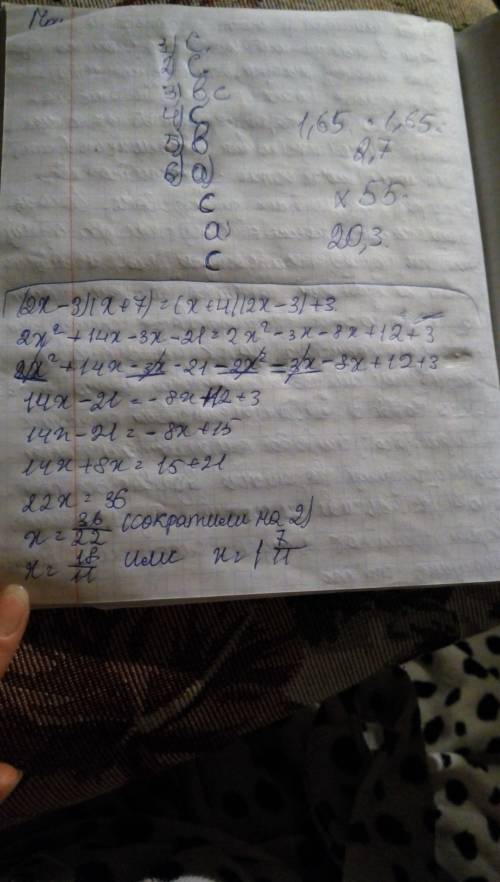 1) c.
2) c.
3) b c
4) c
5) b
6) a)
c
a
c
1,65 · 1,65 =
2,7
x 55.
20,3
(2x-3)(x+7)=(x+4)(2x-3)+3
2x²+14x-3x-21=2x²-3x-8x+12+3
2x²+14x-3x-21-2x²=3x-8x+12+3
14x-21=-8x+12+3
14x-21=-8x+15
14x+8x=15+21
22x=36
x=36/22 (сократили на 2)
x=18/11 или x=1 7/11